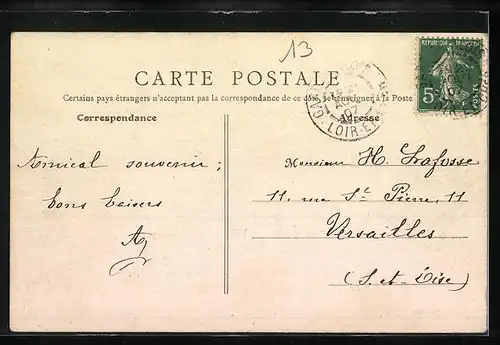 13
CARTE POSTALE
Certains pays étrangers n'acceptant pas la correspondance de ce côté, se renseigner à la Poste
Correspondance
Adresse
REPUBLIQUE FRANÇAISE
5c
07
LOIR-E
Amical souvenir ;
bons baisers
Monsieur H. Lafosse
11, rue St Pierre, 11
Versailles
(S. et-Oise)